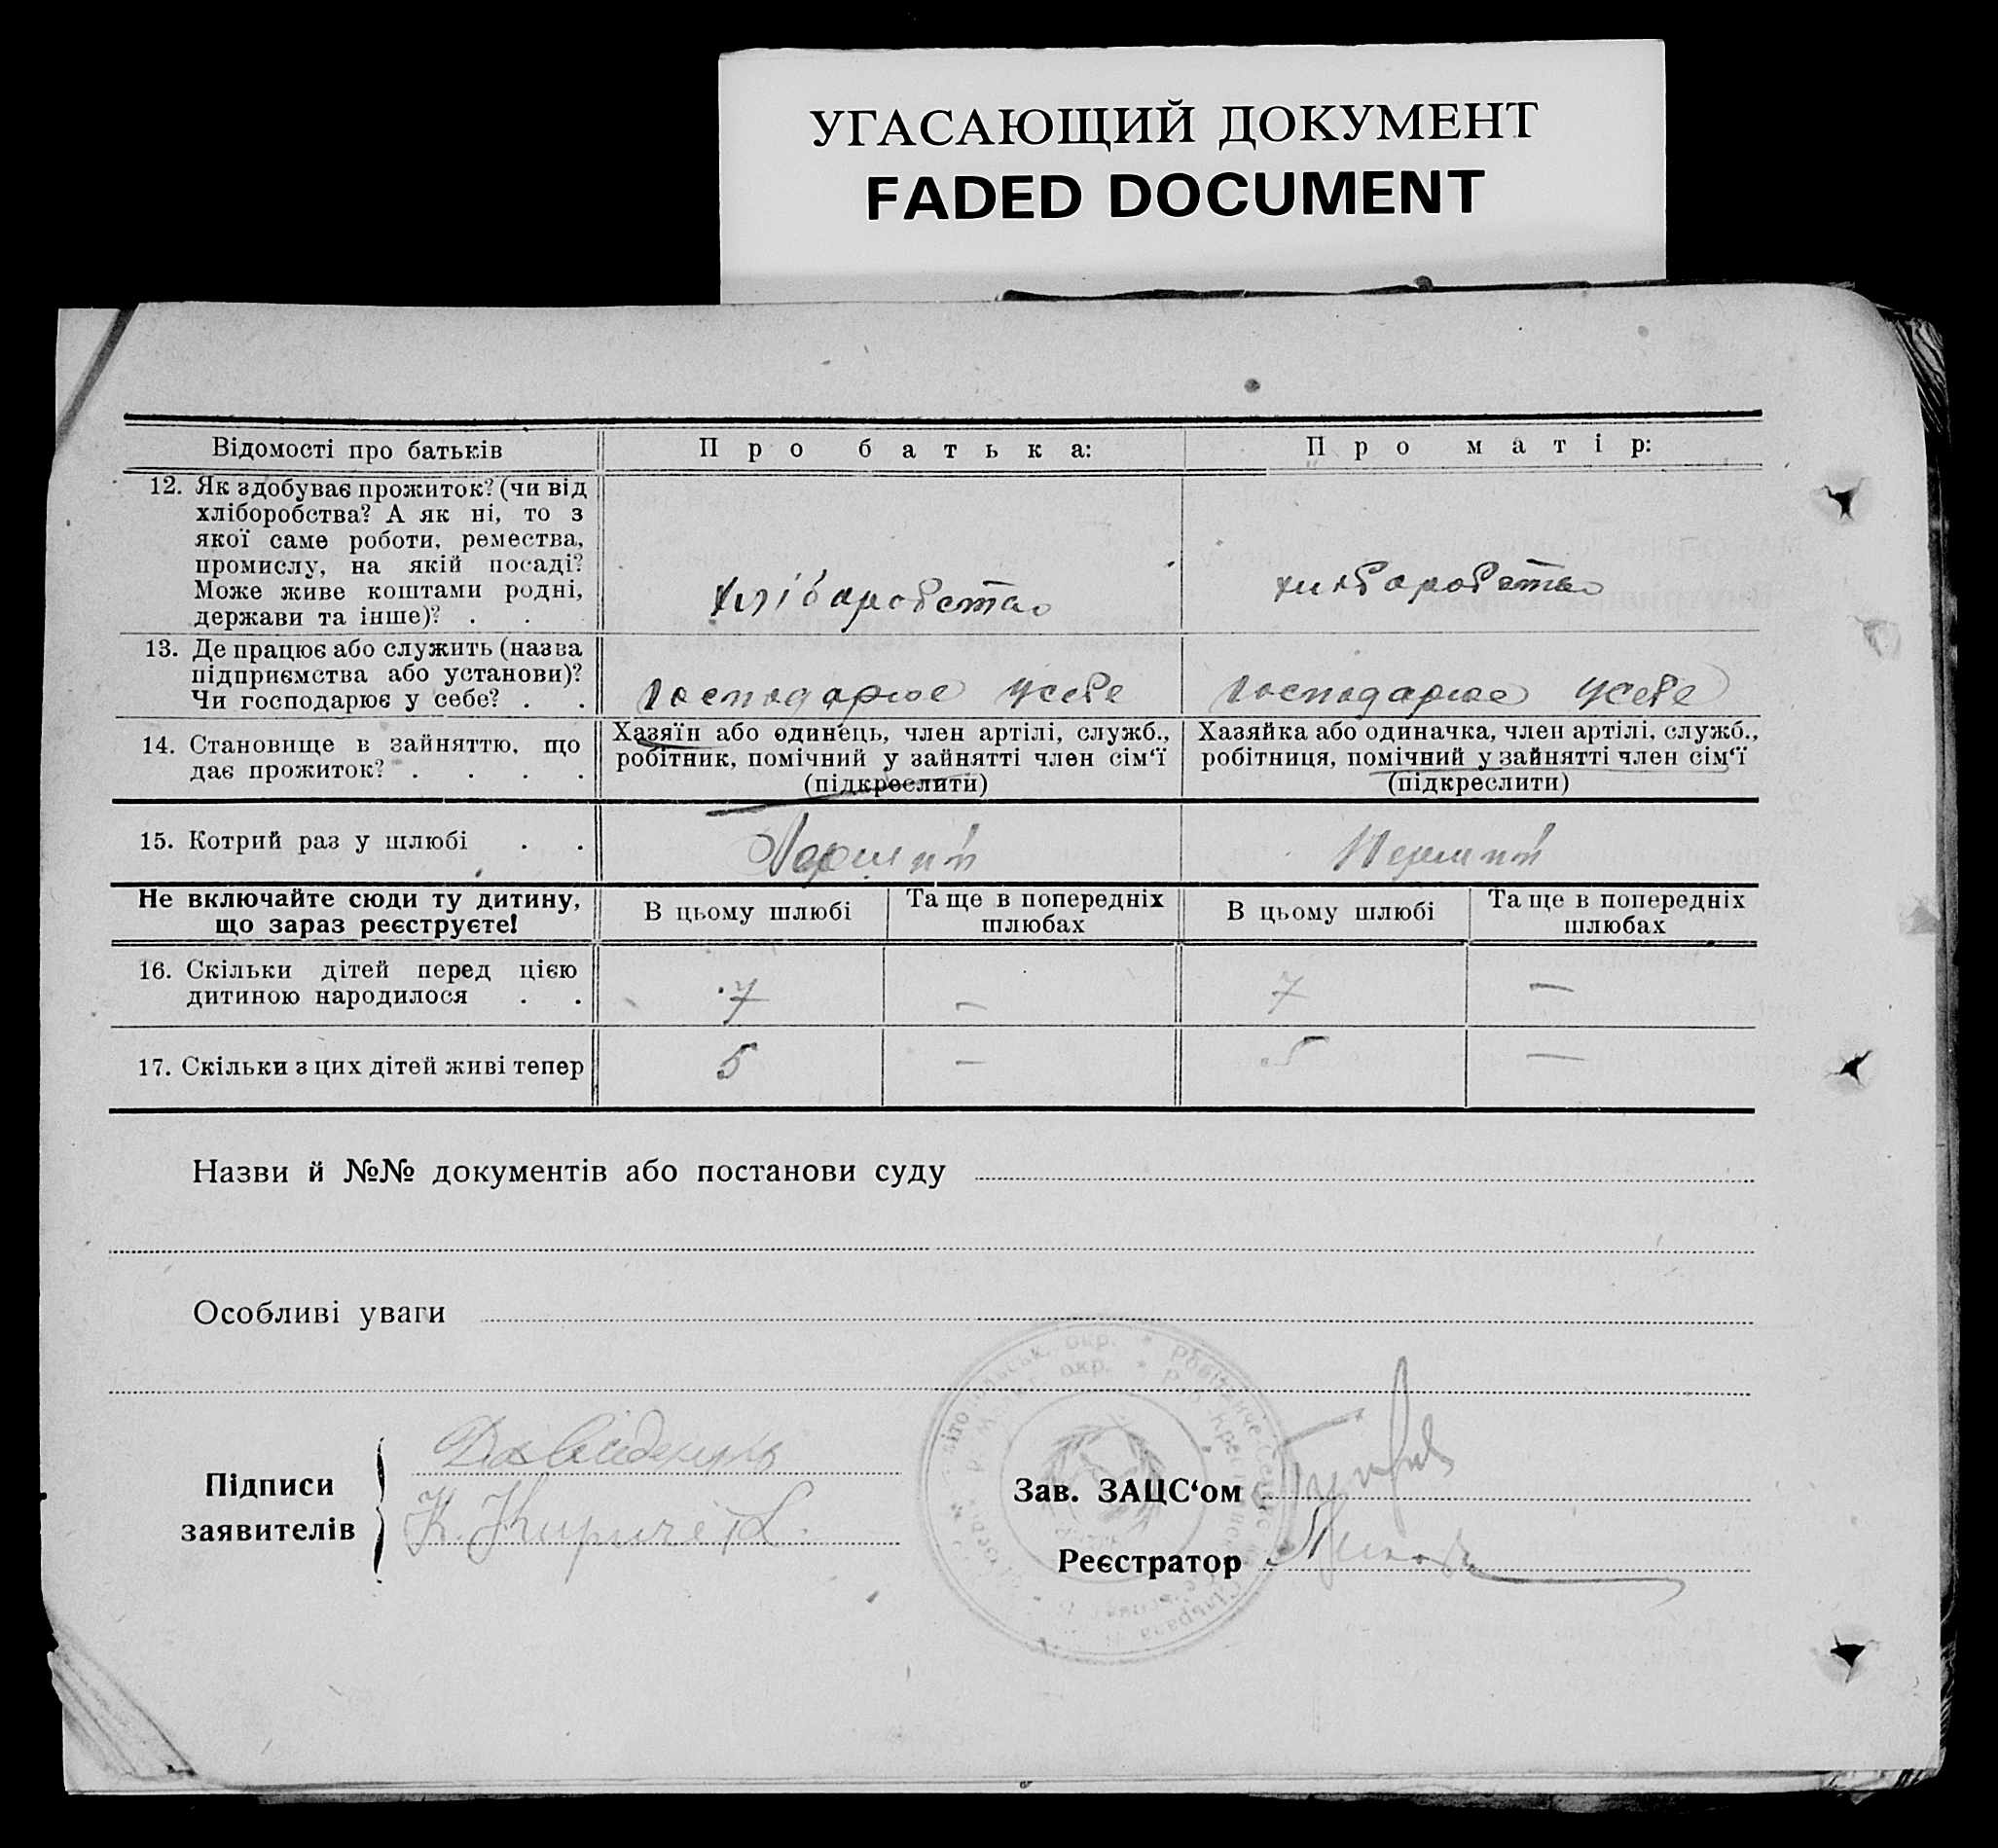 УГАСАЮЩИЙ ДОКУМЕНТ
FADED DOCUMENT
Відомості про батьків
Про батька:
Про матір:
12. Як здобуває прожиток? (чи від
хліборобства? А як ні, то з
якої саме роботи, ремества,
промислу, на якій посаді?
Може живе коштами родні,
держави та інше)? . .
хліборобства
хліборобства
13. Де працює або служить (назва
підприємства або установи)?
Чи господарює у себе? . .
господарює усебе
господарює усебе
14. Становище в зайняттю, що
дає прожиток? . . . .
Хазяїн або одинець, член артілі, служб.,
робітник, помічний у зайнятті член сім‘ї
(підкреслити)
Хазяйка або одиначка, член артілі, служб.,
робітниця, помічний у зайнятті член сім‘ї
(підкреслити)
15. Котрий раз у шлюбі . .
Перший
Перший
Не включайте сюди ту дитину,
що зараз реєструєте!
В цьому шлюбі
Та ще в попередніх
шлюбах
В цьому шлюбі
Та ще в попередніх
шлюбах
16. Скільки дітей перед цією
дитиною народилося . .
7
—
7
—
17. Скільки з цих дітей живі тепер
5
—
5
—
Назви й №№ документів або постанови суду
Особливі уваги
Підписи
заявителів
Давиденко
Зав. ЗАЦС‘ом
Реєстратор